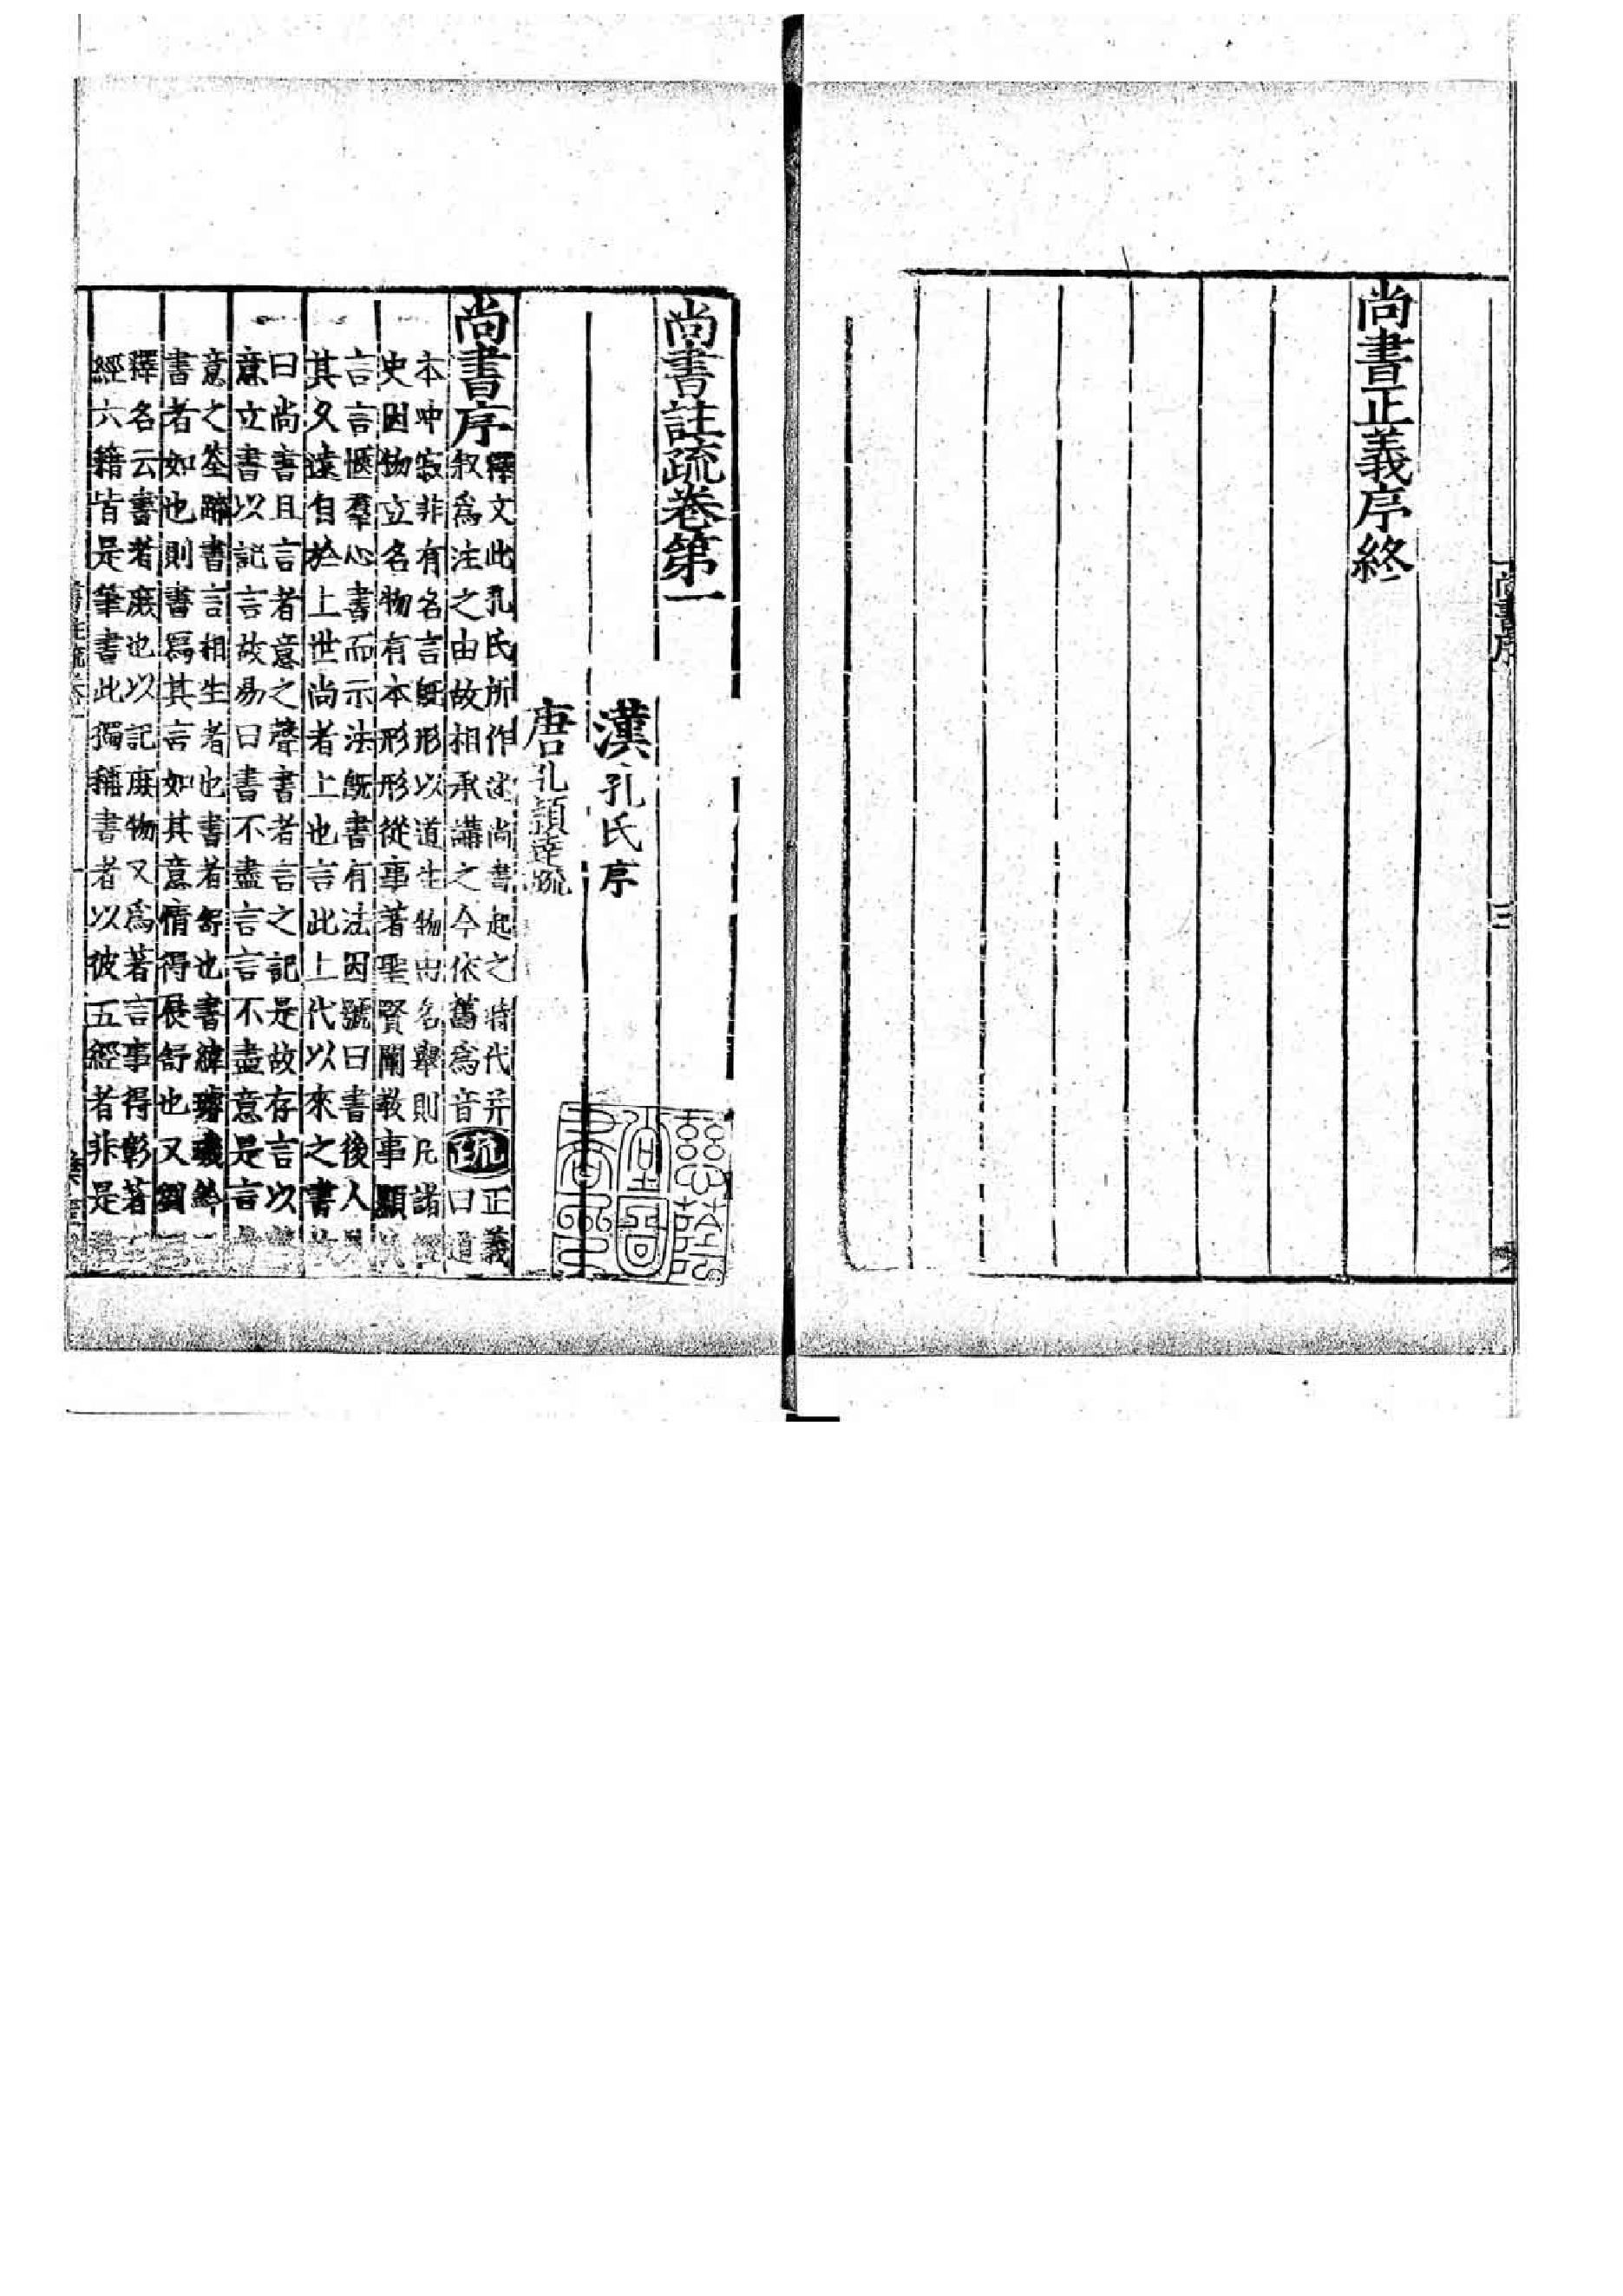 尚書序
三
尚書正義序終
尚書註疏卷第一
漢孔氏序
唐孔穎達疏
尚書序
釋文此孔氏所作述尚書起之時代并
叙爲注之由故相承講之今依舊爲音
疏
正義
曰道
本冲寂非有名言既形以道生物由名舉則凡諸經
史因物立名物有本形形從事著聖賢闡教事顯於
言言愜羣心書而示法既書有法因號曰書後人見
其久遠自於上世尚者上也言此上代以來之書故
曰尚書且言者意之聲書者言之記是故存言以聲
意立書以記言故易曰書不盡言言不盡意是言者
意之筌蹄書言相生者也書者舒也書緯璿璣鈐
書者如也則書寫其言如其意情得展舒也又劉
釋名云書者庶也以記庶物又爲著言事得彰著
經六籍皆是筆書此獨稱書者以彼五經者非是
書註疏卷一
一